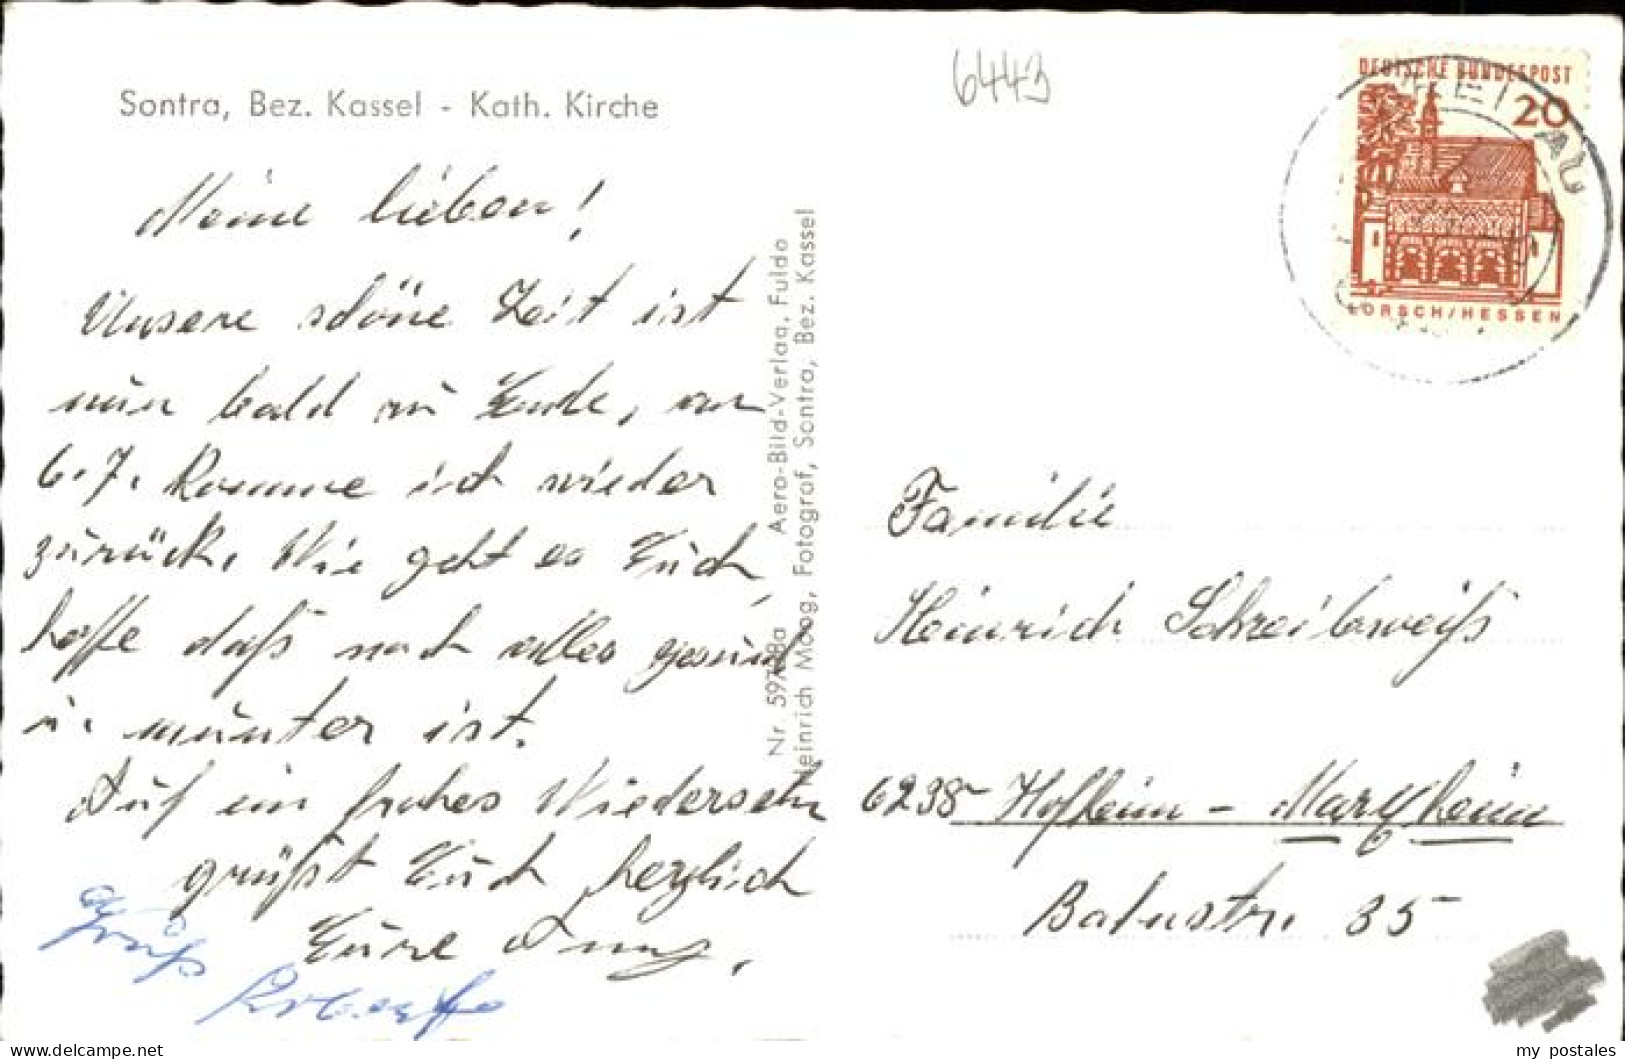 Sontra, Bez. Kassel - Kath. Kirche
6443
DEUTSCHE BUNDESPOST
20
LORSCH/HESSEN
Meine lieben!
Unsere schöne Zeit ist
nun bald zu Ende, am
6.7. komme ich wieder
zurück. Wie geht es Euch,
hoffe daß noch alles gesund
u. munter ist.
Auf ein frohes Wiedersehn
grüßt Euch herzlich
Eure
Gruß
Nr. Aero-Bild-Verlag, Fulda
Heinrich Moog, Fotograf, Sontra, Bez. Kassel
Familie
Heinrich Schreibweiß
6238 Hofheim - Marxheim
Bahnstr. 35
my postales
my postales